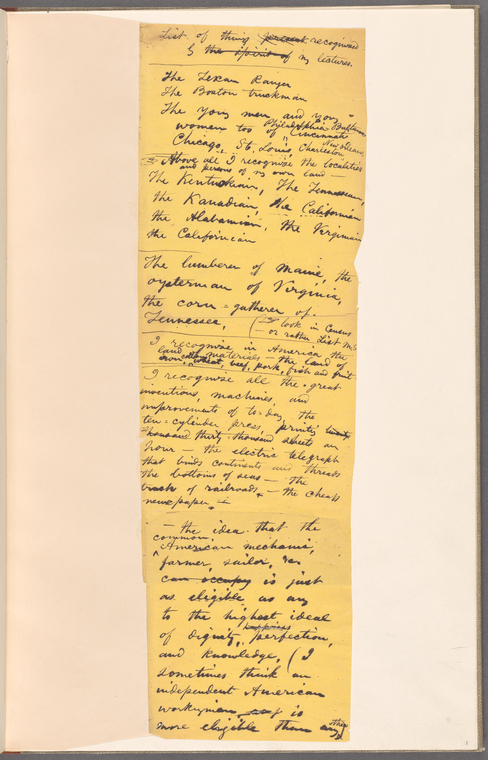 List of things present recognised
by the spirit of my lectures.
The Texan Ranger
The Boston truckman
The young men and young
women too of Philadelphia, Baltimore
Cincinnati
Chicago, St. Louis, Charleston New Orleans
Above all I recognize the localities
and persons of my own land —
The Kentuckian, The Tennessean,
the Kanadian, the Californian
the Alabamian, the Virginian
the Californian
The lumberer of Maine, the
oysterman of Virginia,
the corn-gatherer of
Tennessee, (look in Census
— or rather List
I recognize in America the
land of materials — the land of
iron, wheat, beef, pork, fish and fruit
I recognize all the great
inventions, machines, and
improvements of to-day, the
ten-cylinder press, printing twenty
thousand thirty-thousand sheets an
hour — the electric telegraph
that binds continents and threads
the bottoms of seas — the
track of railroads, — the cheap
newspaper —
— the idea that the
common
American mechanic,
farmer, sailor, &c.
can occupy is just
as eligible as any
to the highest ideal
of dignity, happiness perfection,
and knowledge, (I
sometimes think an
independent American
workman, is
more eligible than any other)